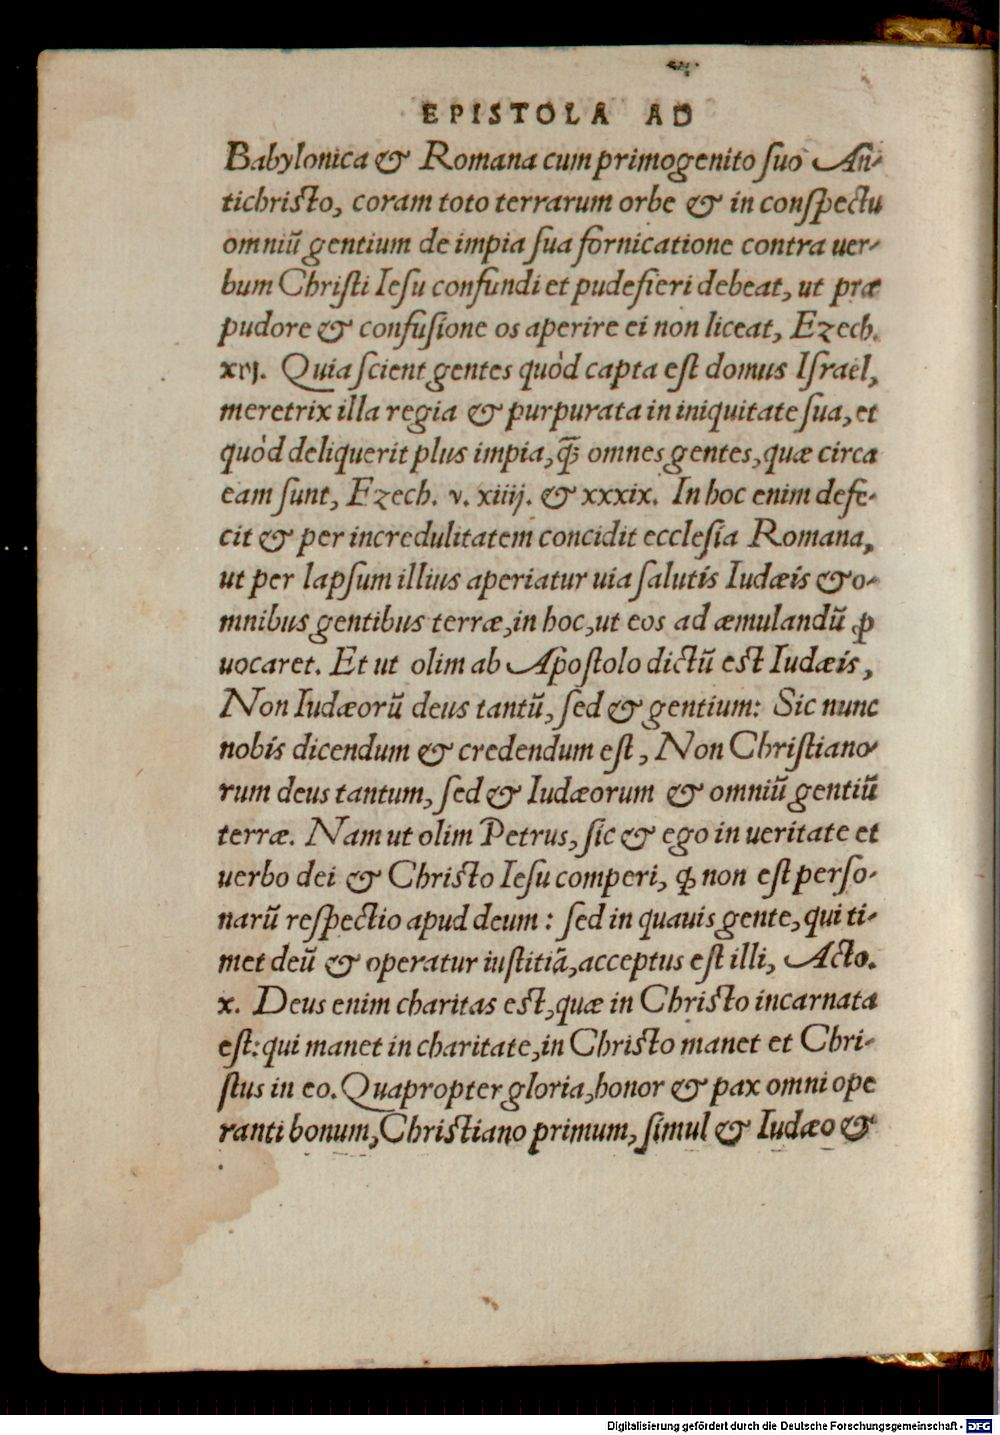 EPISTOLA AD
Babylonica & Romana cum primogenito suo An-
tichristo, coram toto terrarum orbe & in conspectu
omniũ gentium de impia sua fornicatione contra uer-
bum Christi Iesu confundi et pudefieri debeat, ut præ
pudore & confusione os aperire ei non liceat, Ezech.
xvj. Quia scient gentes quòd capta est domus Israel,
meretrix illa regia & purpurata in iniquitate sua, et
quòd deliquerit plus impia, q̃ꝫ omnes gentes, quæ circa
eam sunt, Ezech. v. xiiij. & xxxix. In hoc enim defe-
cit & per incredulitatem concidit ecclesia Romana,
ut per lapsum illius aperiatur uia salutis Iudæis & o-
mnibus gentibus terræ, in hoc, ut eos ad æmulandũ ꝓ
uocaret. Et ut olim ab Apostolo dictũ est Iudæis,
Non Iudæorũ deus tantũ, sed & gentium: Sic nunc
nobis dicendum & credendum est, Non Christiano-
rum deus tantum, sed & Iudæorum & omniũ gentiũ
terræ. Nam ut olim Petrus, sic & ego in ueritate et
uerbo dei & Christo Iesu comperi, ꝙ non est perso-
narũ respectio apud deum: sed in quauis gente, qui ti-
met deũ & operatur iustitiã, acceptus est illi, Acto.
x. Deus enim charitas est, quæ in Christo incarnata
est: qui manet in charitate, in Christo manet et Chri-
stus in eo. Quapropter gloria, honor & pax omni ope
ranti bonum, Christiano primum, simul & Iudæo &
Digitalisierung gefördert durch die Deutsche Forschungsgemeinschaft - DFG